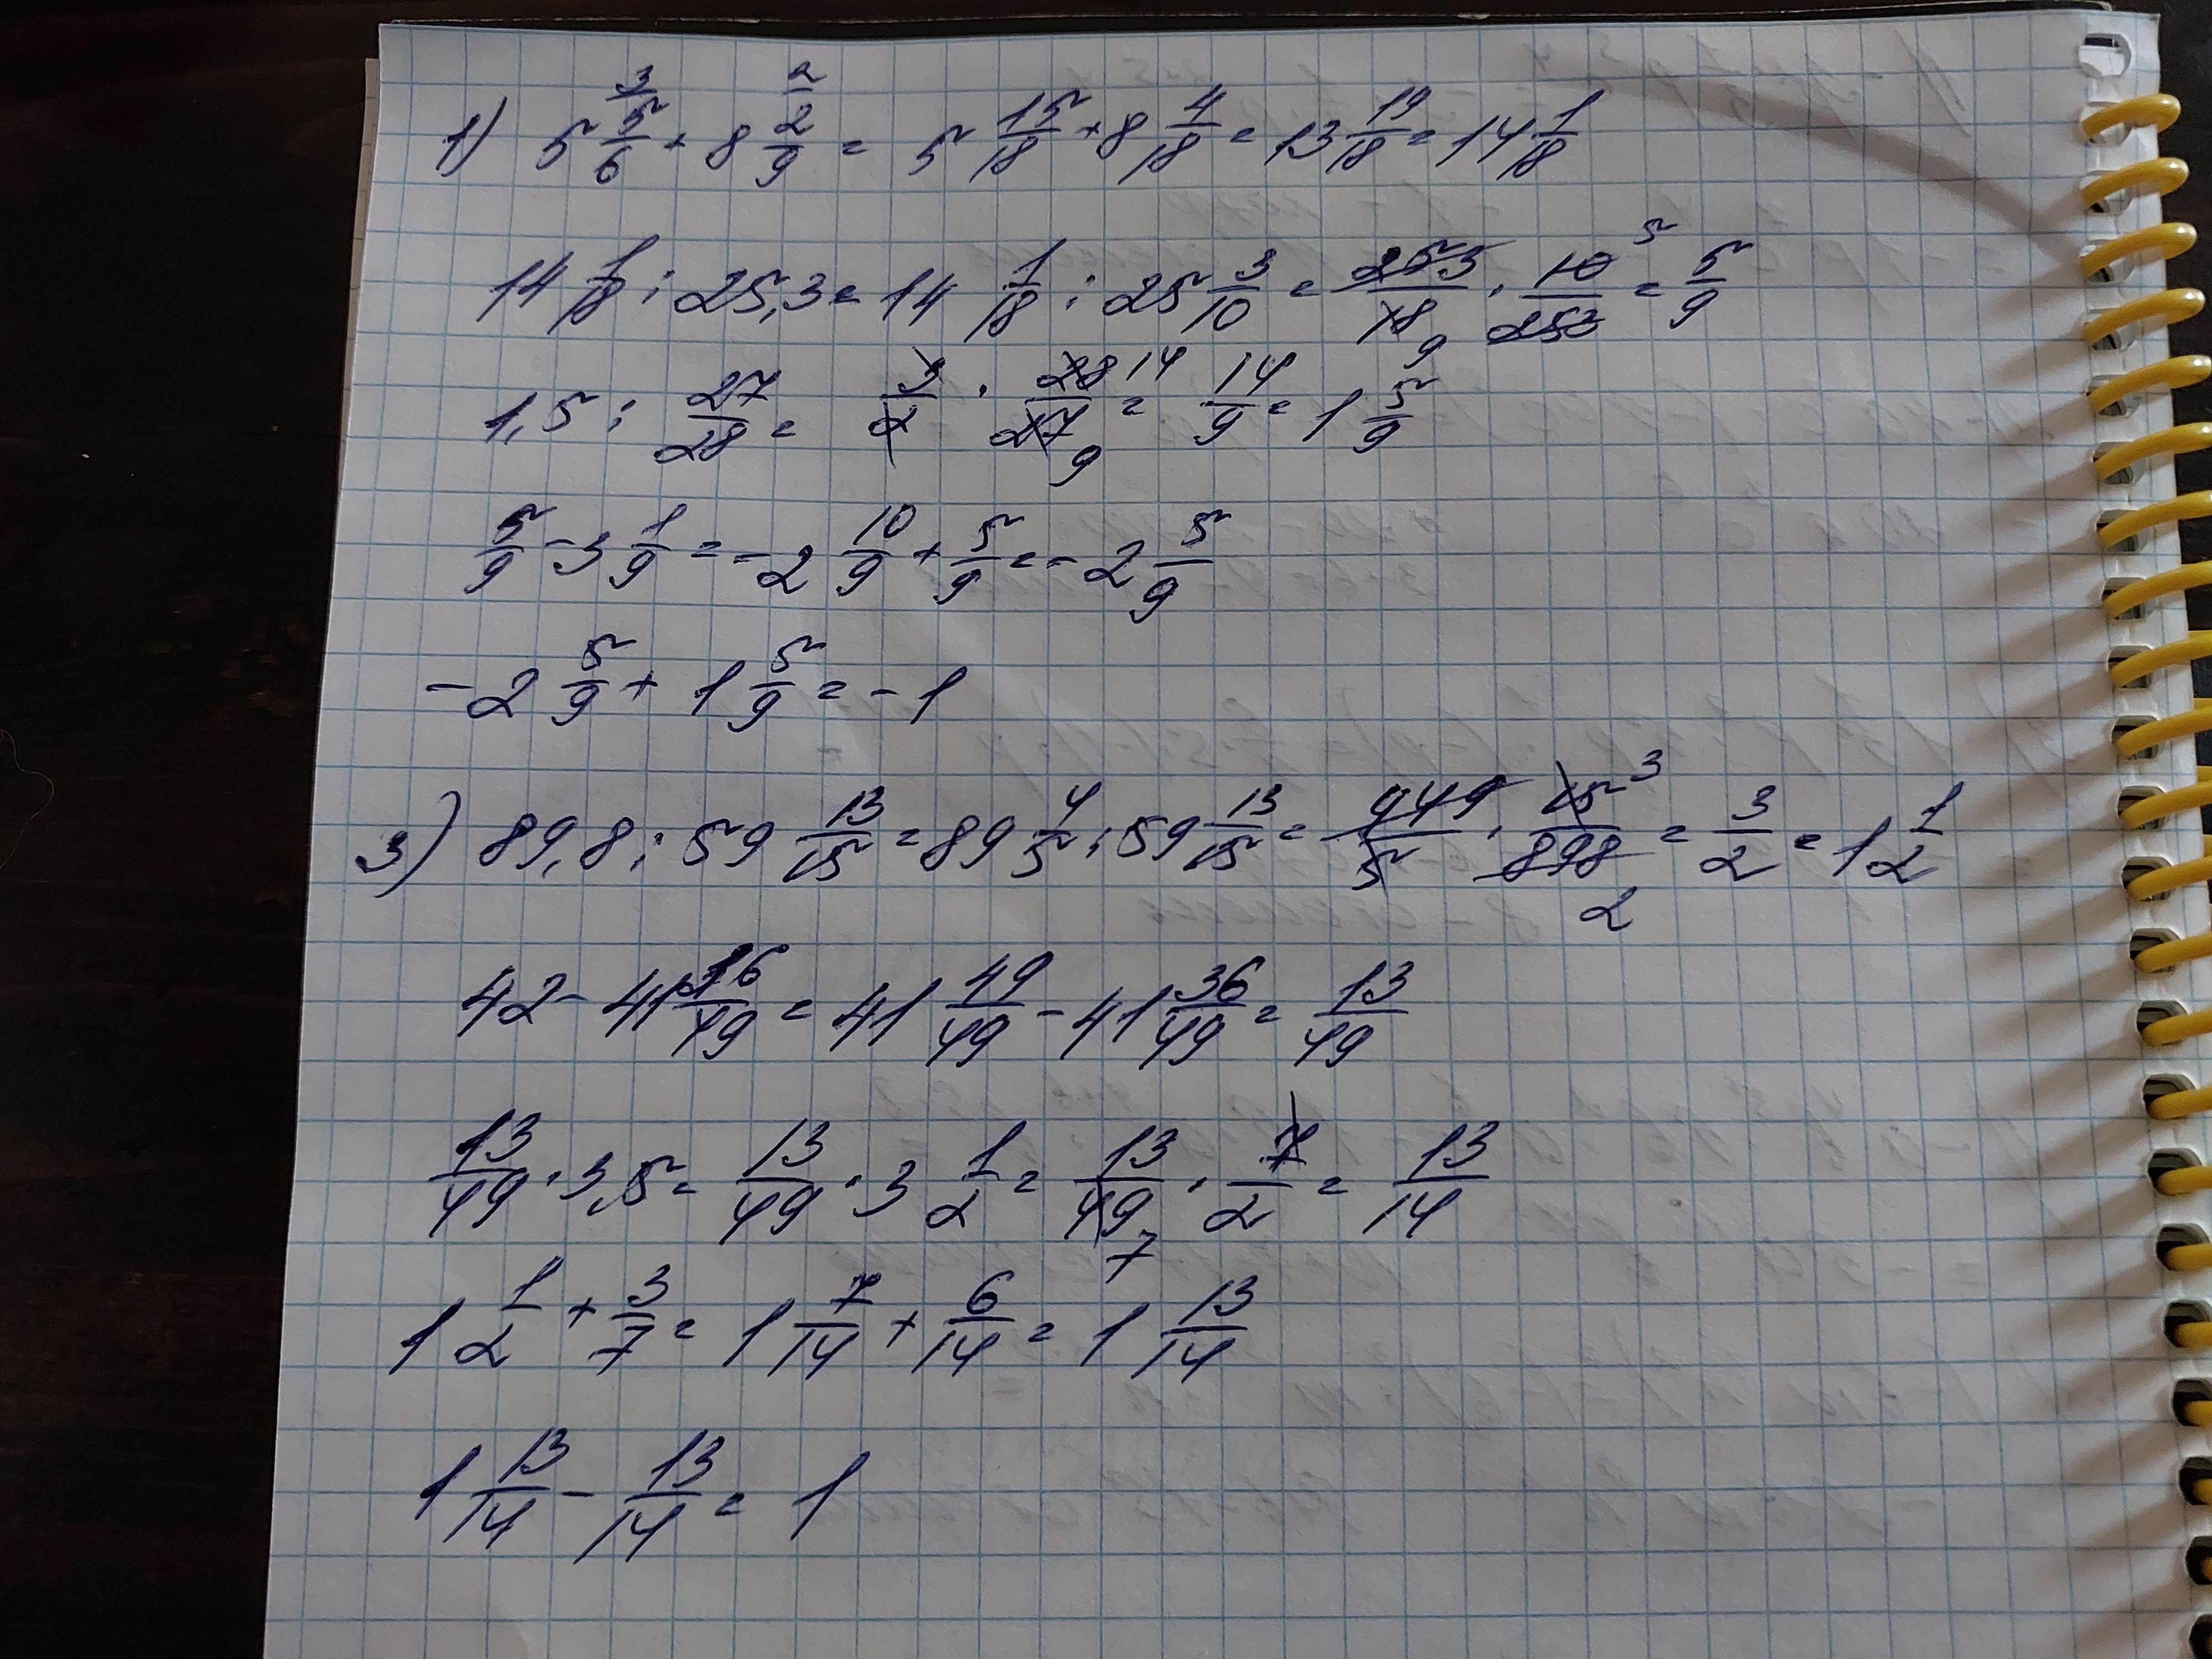 1) 5 5/6 + 8 2/9 = 5 15/18 + 8 4/18 = 13 19/18 = 14 1/18
14 1/18 : 25,3 = 14 1/18 : 25 3/10 = 253/18 · 10/253 = 5/9
1,5 : 27/28 = 3/2 · 28/27 = 14/9 = 1 5/9
5/9 - 3 1/9 = -2 10/9 + 5/9 = -2 5/9
-2 5/9 + 1 5/9 = -1
3) 89,8 : 59 13/15 = 89 4/5 : 59 13/15 = 449/5 · 15/898 = 3/2 = 1 1/2
42 - 41 36/49 = 41 49/49 - 41 36/49 = 13/49
13/49 · 3,5 = 13/49 · 3 1/2 = 13/49 · 7/2 = 13/14
1 1/2 + 3/7 = 1 7/14 + 6/14 = 1 13/14
1 13/14 - 13/14 = 1